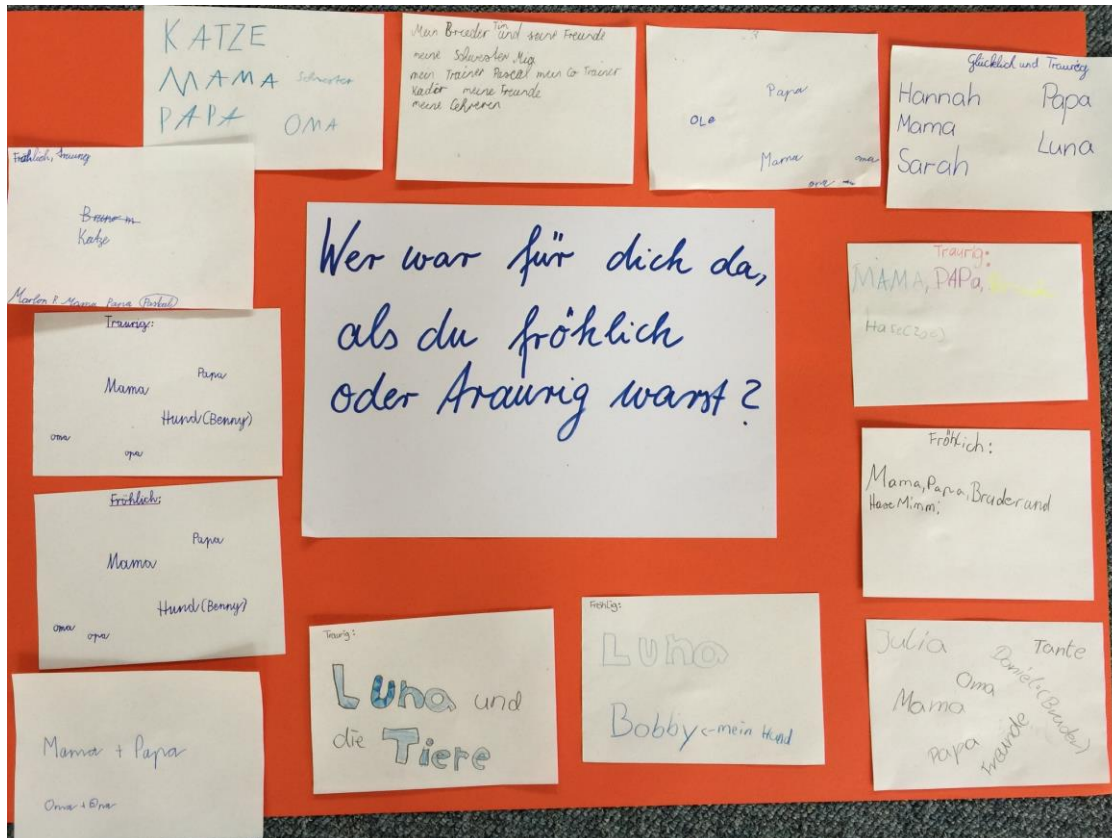 KATZE
MAMA Schwester
PAPA OMA
Mein Brueder Tim und seine Freunde
meine Schwester Mia
mein Trainer Pascal mein Co Trainer
Kadir meine Freunde
meine Lehreren
Papa
OLe
Mama oma
opa
Glücklich und Traurig
Hannah Papa
Mama Luna
Sarah
Fröhlich, traurig
Katze
Marlon P. Mama Papa Paskal
Wer war für dich da,
als du fröhlich
oder traurig warst?
Traurig:
MAMA, PAPA,
Hase(Zoe)
Traurig:
Papa
Mama
Hund (Benny)
oma
opa
Fröhlich:
Mama, Papa, Bruder und
Hase Mimmi
Fröhlich:
Papa
Mama
Hund (Benny)
oma opa
Traurig:
Luna und
die Tiere
Frehlig:
Luna
Bobby <-mein Hund
Julia Tante
Oma Daniel:(Bruder)
Mama
Papa Freunde
Mama + Papa
Oma + Opa